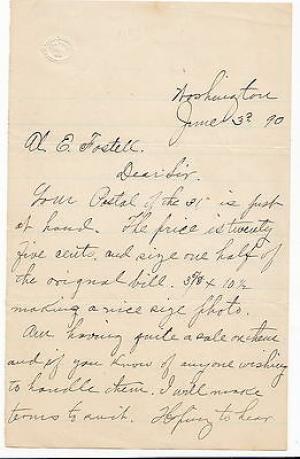 Washington
June 3rd 90
Al E. Fostell.
Dear Sir.
Your Postal of the 31st is just
at hand. The price is twenty
five cents, and size one half of
the orignal bill. 3⅜ x 10½
making a nice size photo.
Am having quite a sale on them
and if you know of anyone wishing
to handle them. I will make
terms to suit. Hoping to hear